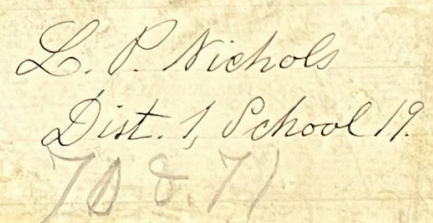 L. P. Nichols
Dist. 1, School 19.
70 & 71